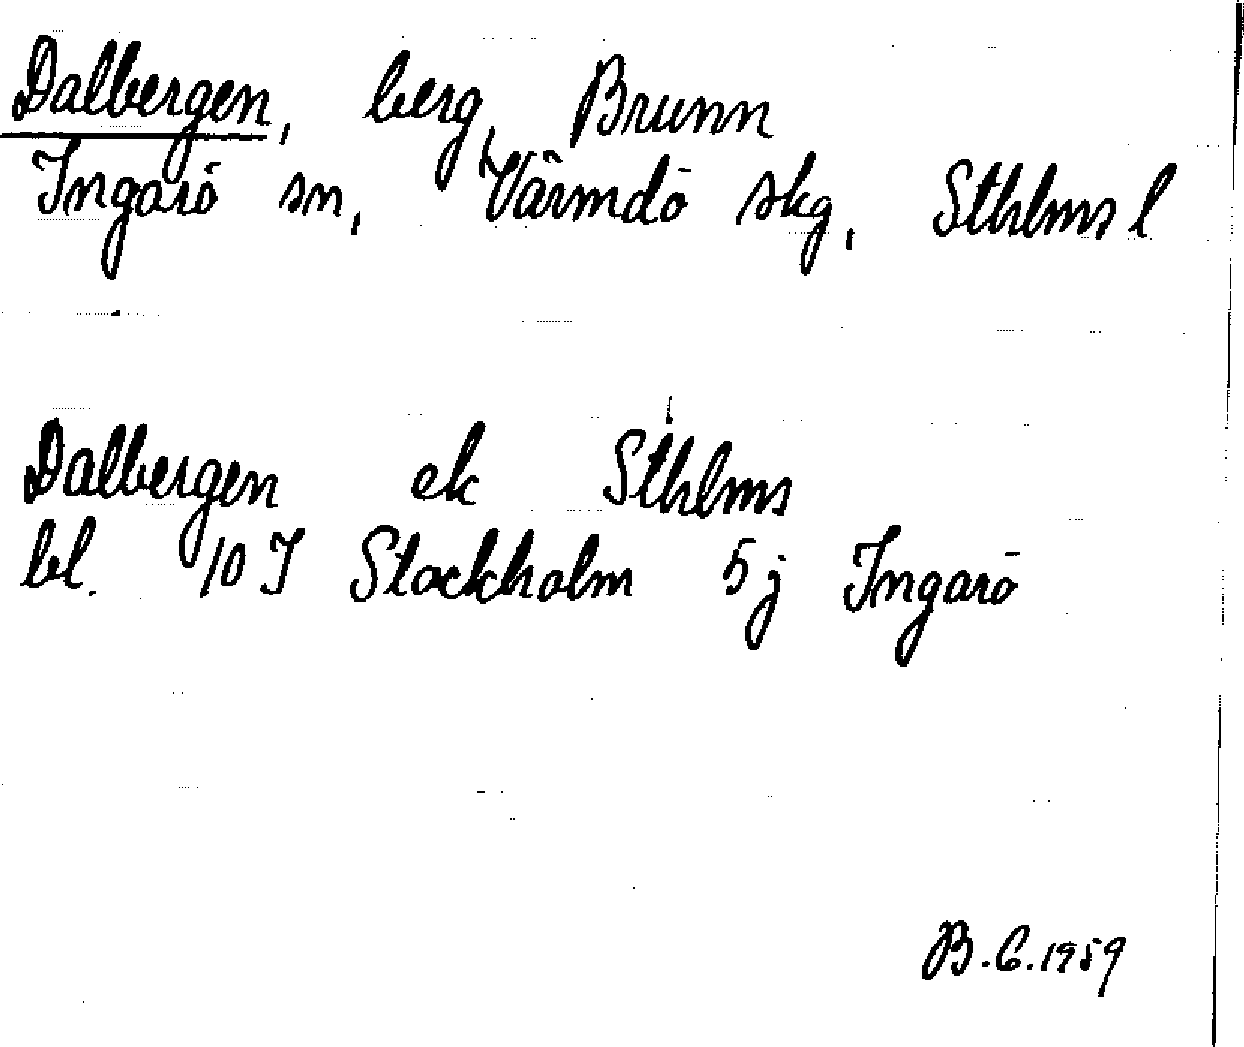 Dalbergen, berg, Brunn
Ingarö sn, Värmdö skg, Sthlms l
Dalbergen ek Sthlms
bl. 10 I Stockholm 5 j Ingarö
B.C.1959